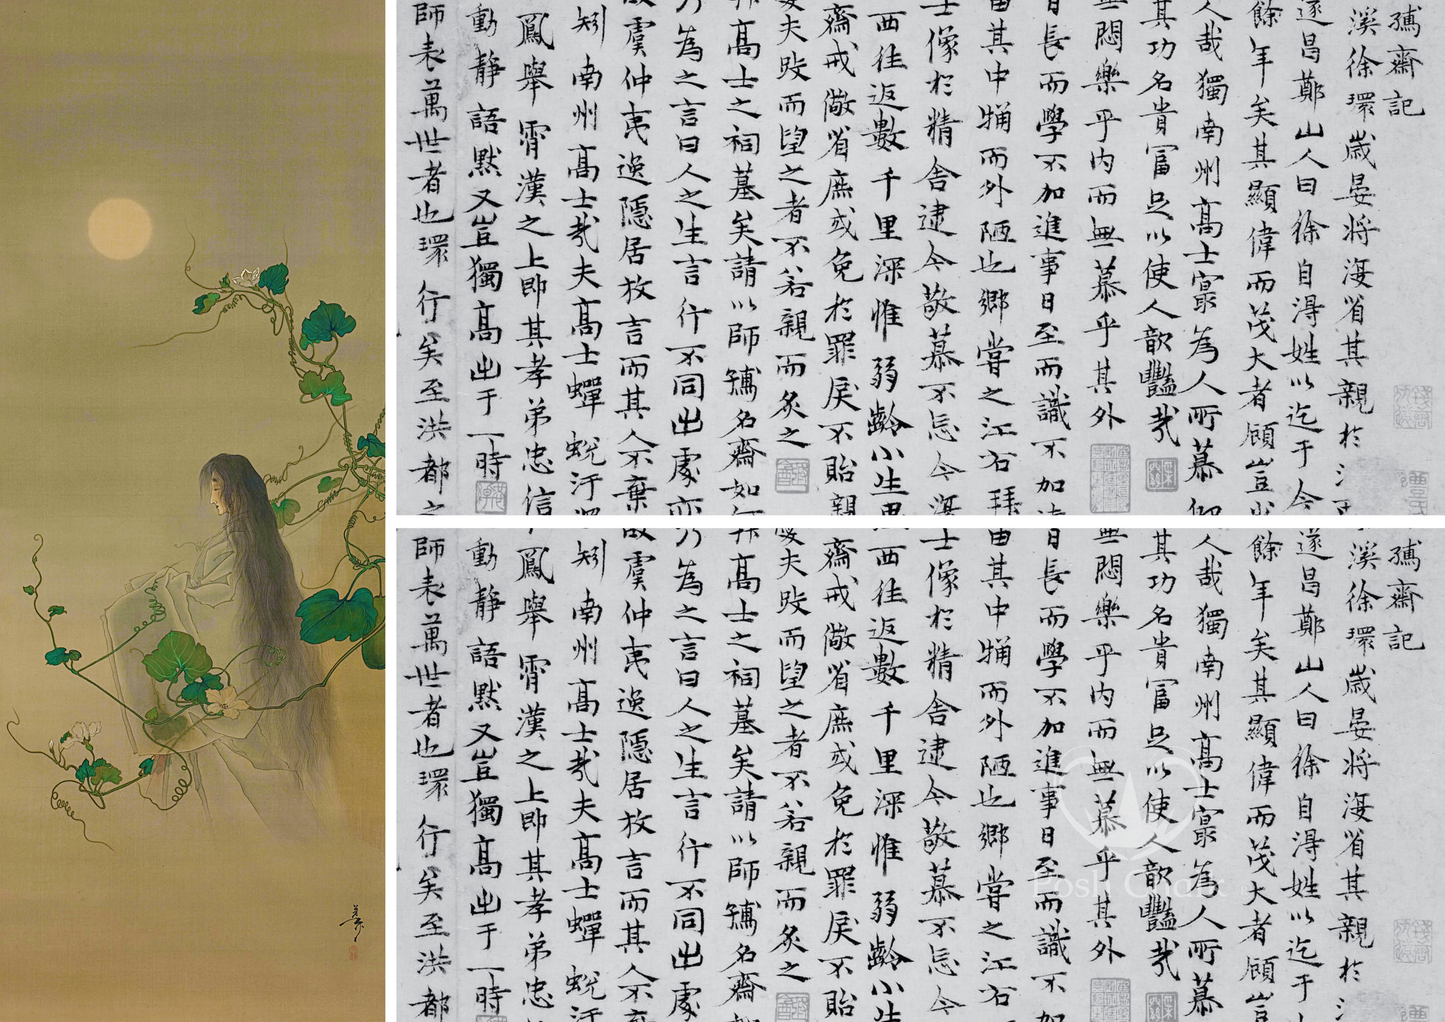 孺齋記
溪徐環歲晏將淂省其親於
遂昌鄭山人曰徐自淂姓以迄于今
餘年矣其顯偉而茂大者顧豈
人哉獨南州高士寔為人所慕
其功名貴富足以使人歆豔哉
無悶樂乎内而無慕乎其外
日長而學不加進事日至而識不加
由其中犕而外陋也鄉嘗之江右拜
士像於精舍逮今敬慕不忘今
西往返數千里深惟弱齡小生
齋戒儆省庶或免於罪戾不貽親
夫跂而望之者不若親而炙之
高士之祠墓矣請以師孺名齋如
為之言曰人之生言行不同出處
故虞仲夷逸隱居放言而其人不棄
矧南州高士哉夫高士蟬蛻汙
鳳舉霄漢之上即其孝弟忠信
動静語默又豈獨高出于一時
師表萬世者也環行矣至洪都之
孺齋記
溪徐環歲晏將淂省其親於
遂昌鄭山人曰徐自淂姓以迄于
餘年矣其顯偉而茂大者顧豈
人哉獨南州高士寔為人所慕
其功名貴富足以使人歆豔哉
無悶樂乎内而無慕乎其外
日長而學不加進事日至而識不
由其中犕而外陋也鄉嘗之江右
士像於精舍逮今敬慕不忘今
西往返數千里深惟弱齡小生
齋戒儆省庶或免於罪戾不貽
夫跂而望之者不若親而炙之
高士之祠墓矣請以師孺名齋如
為之言曰人之生言行不同出處
故虞仲夷逸隱居放言而其人不棄
矧南州高士哉夫高士蟬蛻汙
鳳舉霄漢之上即其孝弟忠
動静語默又豈獨高出于一時
師表萬世者也環行矣至洪都
Posh Chalk